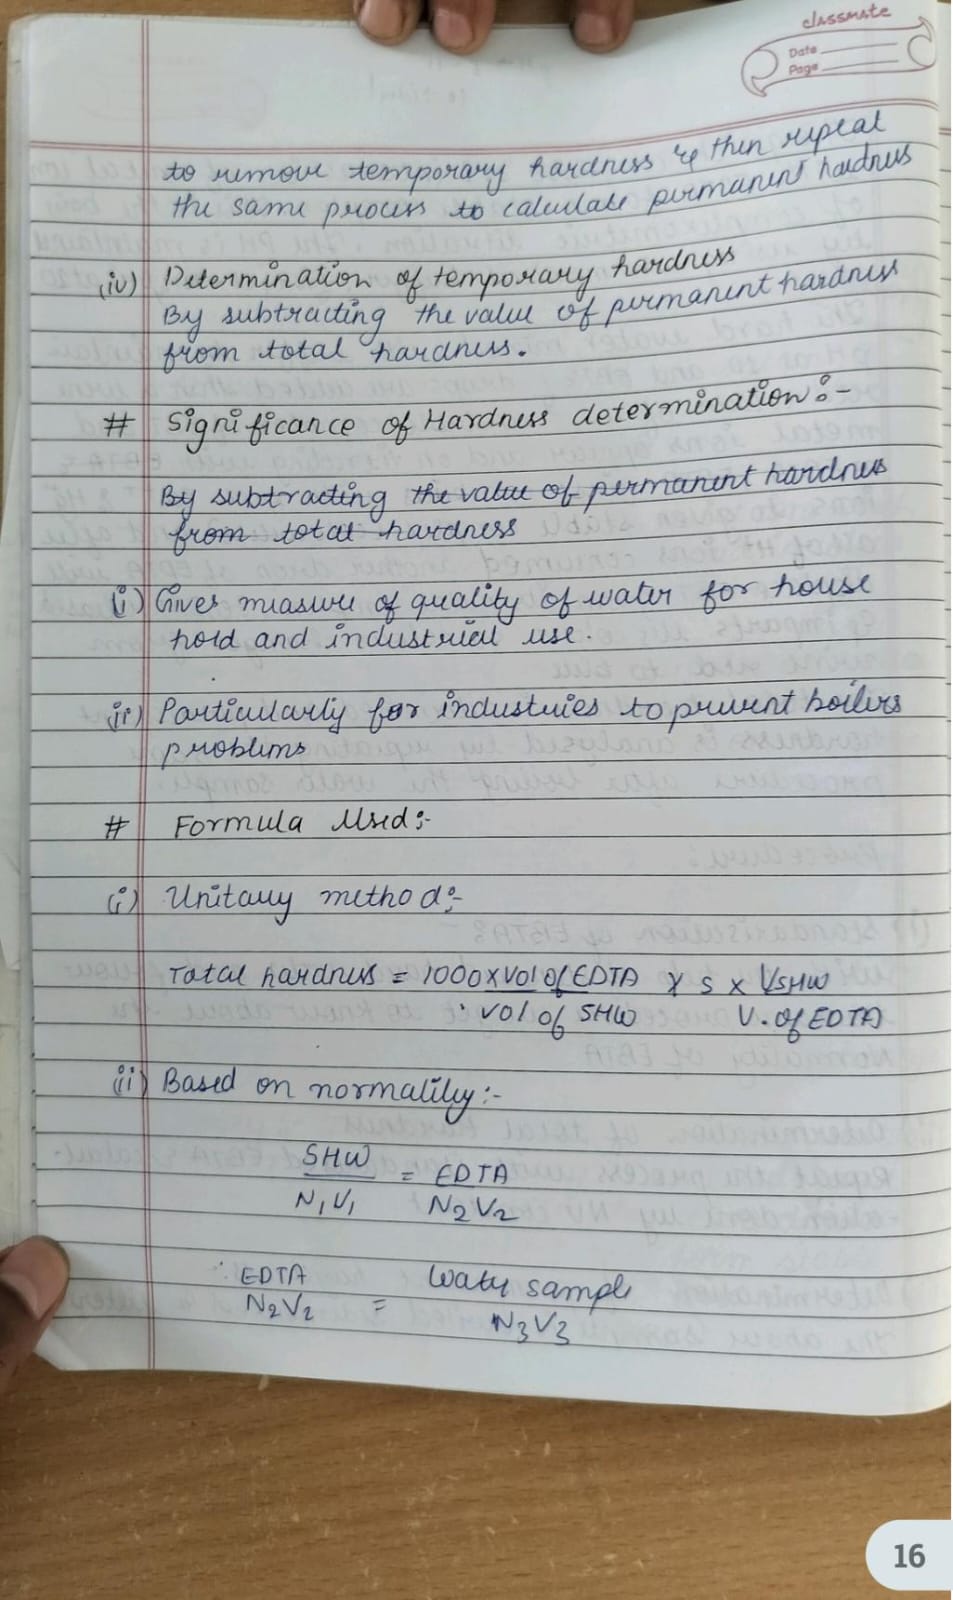 classmate
Date
Page
to remove temporary hardness & then repeat
the same process to calculate permanent hardness
(iv) Determination of temporary hardness
By subtracting the value of permanent hardness
from total hardness.
# Significance of Hardness determination:-
By subtracting the value of permanent hardness
from total hardness
(i) Gives measure of quality of water for house
hold and industrial use.
(ii) Particularly for industries to prevent boilers
problems
# Formula Used:-
(i) Unitary method:-
Total hardness = 1000 x vol of EDTA x S x VSHW
vol of SHW V. of EDTA
(ii) Based on normality:-
SHW = EDTA
N1V1 N2V2
EDTA = Water sample
N2V2 N3V3
16